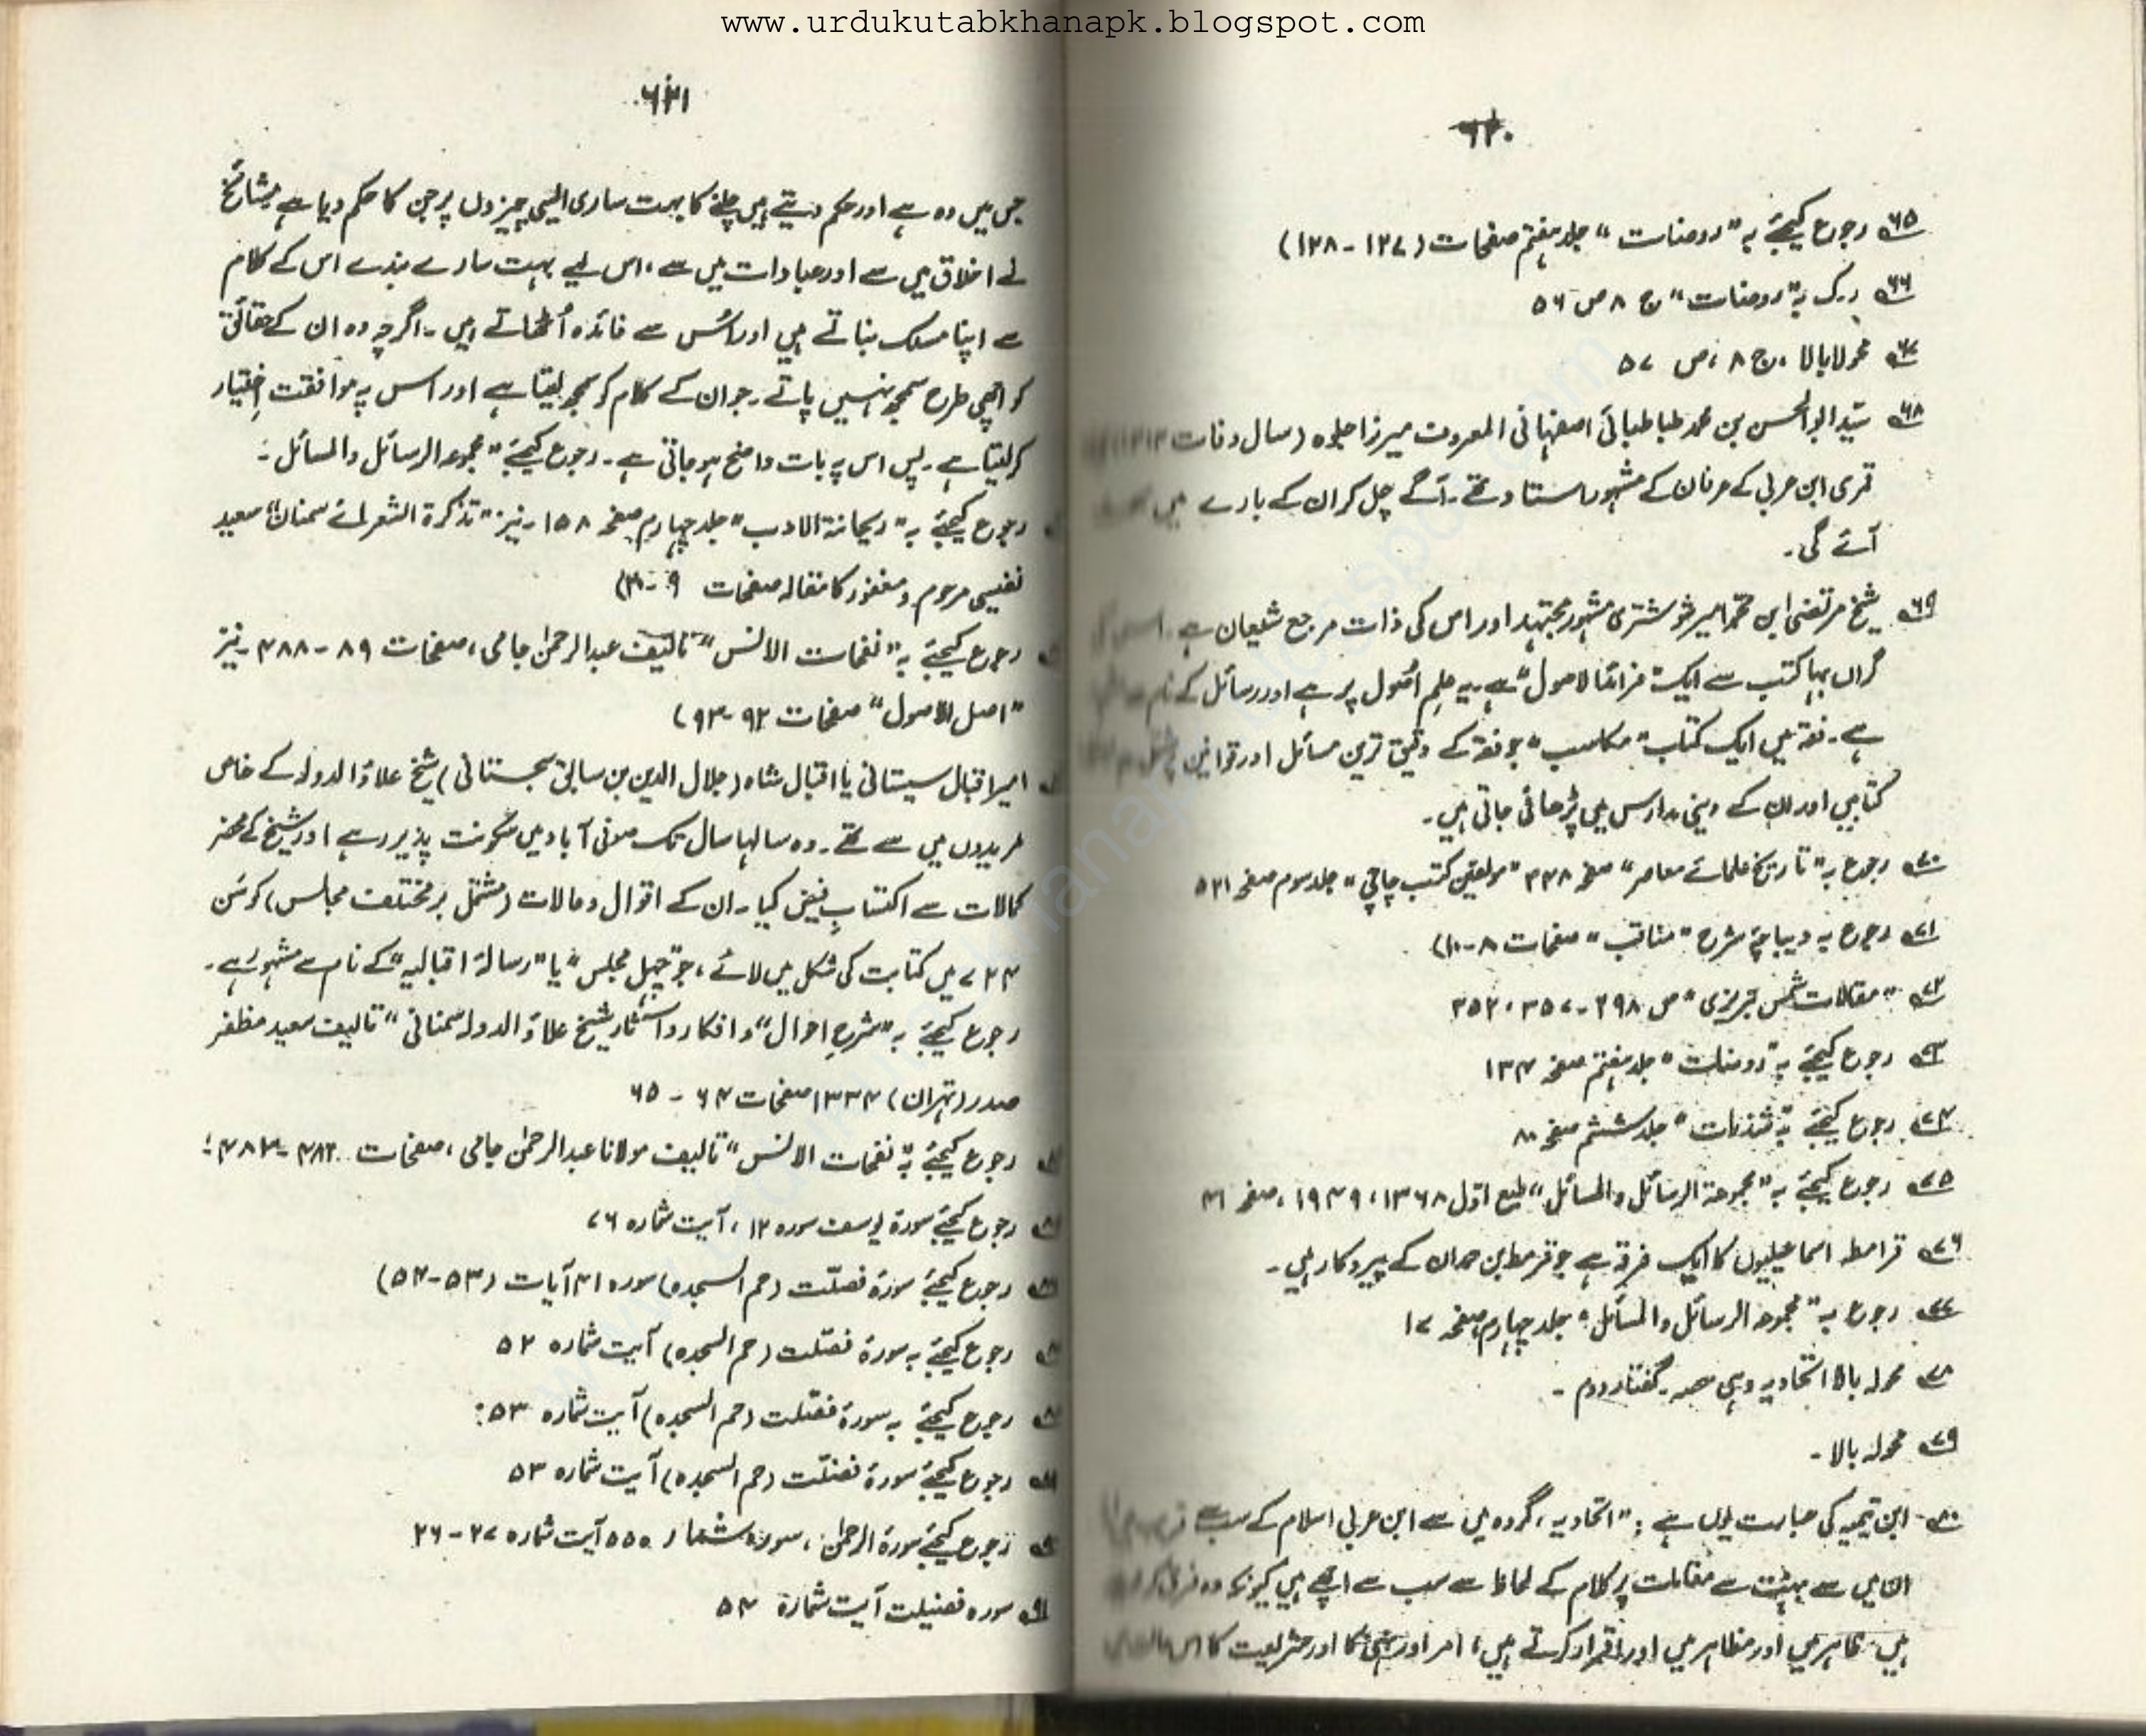 www.urdukutabkhanapk.blogspot.com
۶۲۰
۶۵ رجوع کیجئے بہ "روضات" جلد ہفتم صفحات (۱۲۷ - ۱۲۸)
۶۶ ر.ک بہ "روضات" ج ۸ ص ۵۶
۶۷ محولا بالا، ج ۸، ص ۵۷
۶۸ سیّد ابوالحسن بن محمد طباطبائی اصفہانی المعروف میرزا جلوہ (سال وفات
قمری ابن عربی کے عرفان کے مشہور استاد تھے۔ آگے چل کر ان کے بارے میں
آئے گی۔
۶۹ شیخ مرتضیٰ ابن محمد امیر شوشتری مشہور مجتہد اور اس کی ذات مرجع شیعیان ہے۔
گراں بہا کتب سے ایک "فرائد الاصول" ہے۔ یہ علمِ اُصول پر ہے اور رسائل کے نام
ہے۔ فقہ میں ایک کتاب "مکاسب" جو فقہ کے دقیق ترین مسائل اور قوانین
کتابیں اور ان کے دینی مدارس میں پڑھائی جاتی ہیں۔
۷۰ رجوع بہ "تاریخ علمائے معاصر" صفحہ ۳۳۸ "مولفین کتب چاپی" جلد سوم صفحہ ۵۳۱
۷۱ رجوع بہ دیباچۂ شرح "مناقب" صفحات ۸-۱۰)
۷۲ "مقالات شمس تبریزی" ص ۲۹۸ - ۳۵۷، ۳۵۲
۷۳ رجوع کیجئے بہ "روضات" جلد ہفتم صفحہ ۱۳۴
۷۴ رجوع کیجئے بہ "شذرات" جلد ششم صفحہ ۸۰
۷۵ رجوع کیجئے بہ "مجموعۃ الرسائل والمسائل" طبع اوّل ۱۳۶۸، ۱۹۴۹، صفحہ ۴۱
۷۶ قرامطہ اسماعیلیوں کا ایک فرقہ ہے جو قرمط بن حمدان کے پیروکار ہیں۔
۷۷ رجوع بہ "مجموعہ الرسائل والمسائل" جلد چہارم صفحہ ۱۷
۷۸ محولہ بالا اتحادیہ وہی حصہ۔ گفتار دوم۔
۷۹ محولہ بالا۔
۸۰ ابن تیمیہ کی عبارت یوں ہے: "اتحادیہ، گروہ میں سے ابن عربی اسلام کے سب سے
ان میں سے بہت سے مقامات پر کلام کے لحاظ سے سب سے اچھے ہیں کیونکہ وہ فرق
ہیں۔ ظاہر میں اور مظاہر میں اور اقرار کرتے ہیں، امر اور نہی کا اور شریعت کا اس
۶۲۱
جس میں وہ ہے اور حکم دیتے ہیں چلنے کا بہت ساری ایسی چیزوں پر جن کا حکم دیا ہے مشائخ
نے اخلاق میں سے اور عبادات میں سے، اس لیے بہت سارے بندے اس کے کلام
سے اپنا مسلک بناتے ہیں اور اُس سے فائدہ اُٹھاتے ہیں۔ اگرچہ وہ ان کے حقائق
کو اچھی طرح سمجھ نہیں پاتے۔ جو ان کے کلام کو سمجھ لیتا ہے اور اس پہ موافقت اختیار
کر لیتا ہے۔ پس اس پہ بات واضح ہو جاتی ہے۔ رجوع کیجئے "مجموعہ الرسائل والمسائل۔
رجوع کیجئے بہ "ریحانۃ الادب" جلد چہارم صفحہ ۱۵۸۔ نیز "تذکرۃ الشعرائے سمنان" سعید
نفیسی مرحوم و مغفور کا مقالہ صفحات ۹
رجوع کیجئے بہ "نفحات الانس" تالیف عبدالرحمٰن جامی، صفحات ۸۹ - ۴۸۸۔ نیز
"اصل الاصول" صفحات ۹۲ - ۹۳)
امیر اقبال سیستانی یا اقبال شاہ (جلال الدین بن سابق سجستانی) شیخ علاؤالدولہ کے خاص
مریدوں میں سے تھے۔ وہ سالہا سال تک صوفی آباد میں سکونت پذیر رہے اور شیخ کے محضر
کمالات سے اکتسابِ فیض کیا۔ ان کے اقوال و حالات (مشتمل بر مختلف مجالس) کو سَن
۷۲۴ میں کتابت کی شکل میں لائے، جو "چہل مجلس" یا "رسالۂ اقبالیہ" کے نام سے مشہور ہے۔
رجوع کیجئے بہ "شرح احوال" و افکار و آثار شیخ علاؤ الدولہ سمنانی" تالیف سعید مظفر
صدر (تہران) ۱۳۳۴ صفحات ۶۴ - ۶۵
رجوع کیجئے بہ "نفحات الانس" تالیف مولانا عبدالرحمٰن جامی، صفحات
رجوع کیجئے سورۃ یوسف سورہ ۱۲، آیت شمارہ ۷۶
رجوع کیجئے سورۃ فصلّت (حم السجدہ) سورہ ۴۱ آیات (۵۳-۵۴)
رجوع کیجئے بہ سورۃ فصلّت (حم السجدہ) آیت شمارہ ۵۲
رجوع کیجئے بہ سورۃ فصّلت (حم السجدہ) آیت شمارہ ۵۳
رجوع کیجئے سورۃ فصلّت (حم السجدہ) آیت شمارہ ۵۳
رجوع کیجئے سورۃ الرحمٰن، سورہ شمار ۵۵ آیت شمارہ ۲۷ - ۲۶
سورہ فصیلت آیت شمارۃ ۵۴